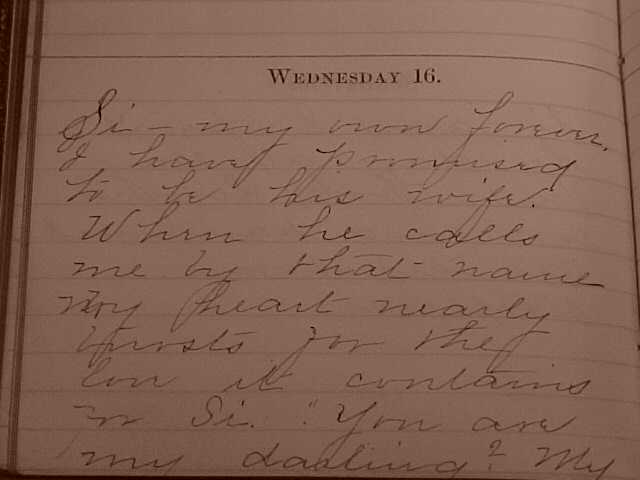 WEDNESDAY 16.
Si – my own forever.
I have promised
to be his wife.
When he calls
me by that name
my heart nearly
bursts for the
love it contains
for Si. "You are
my darling? My